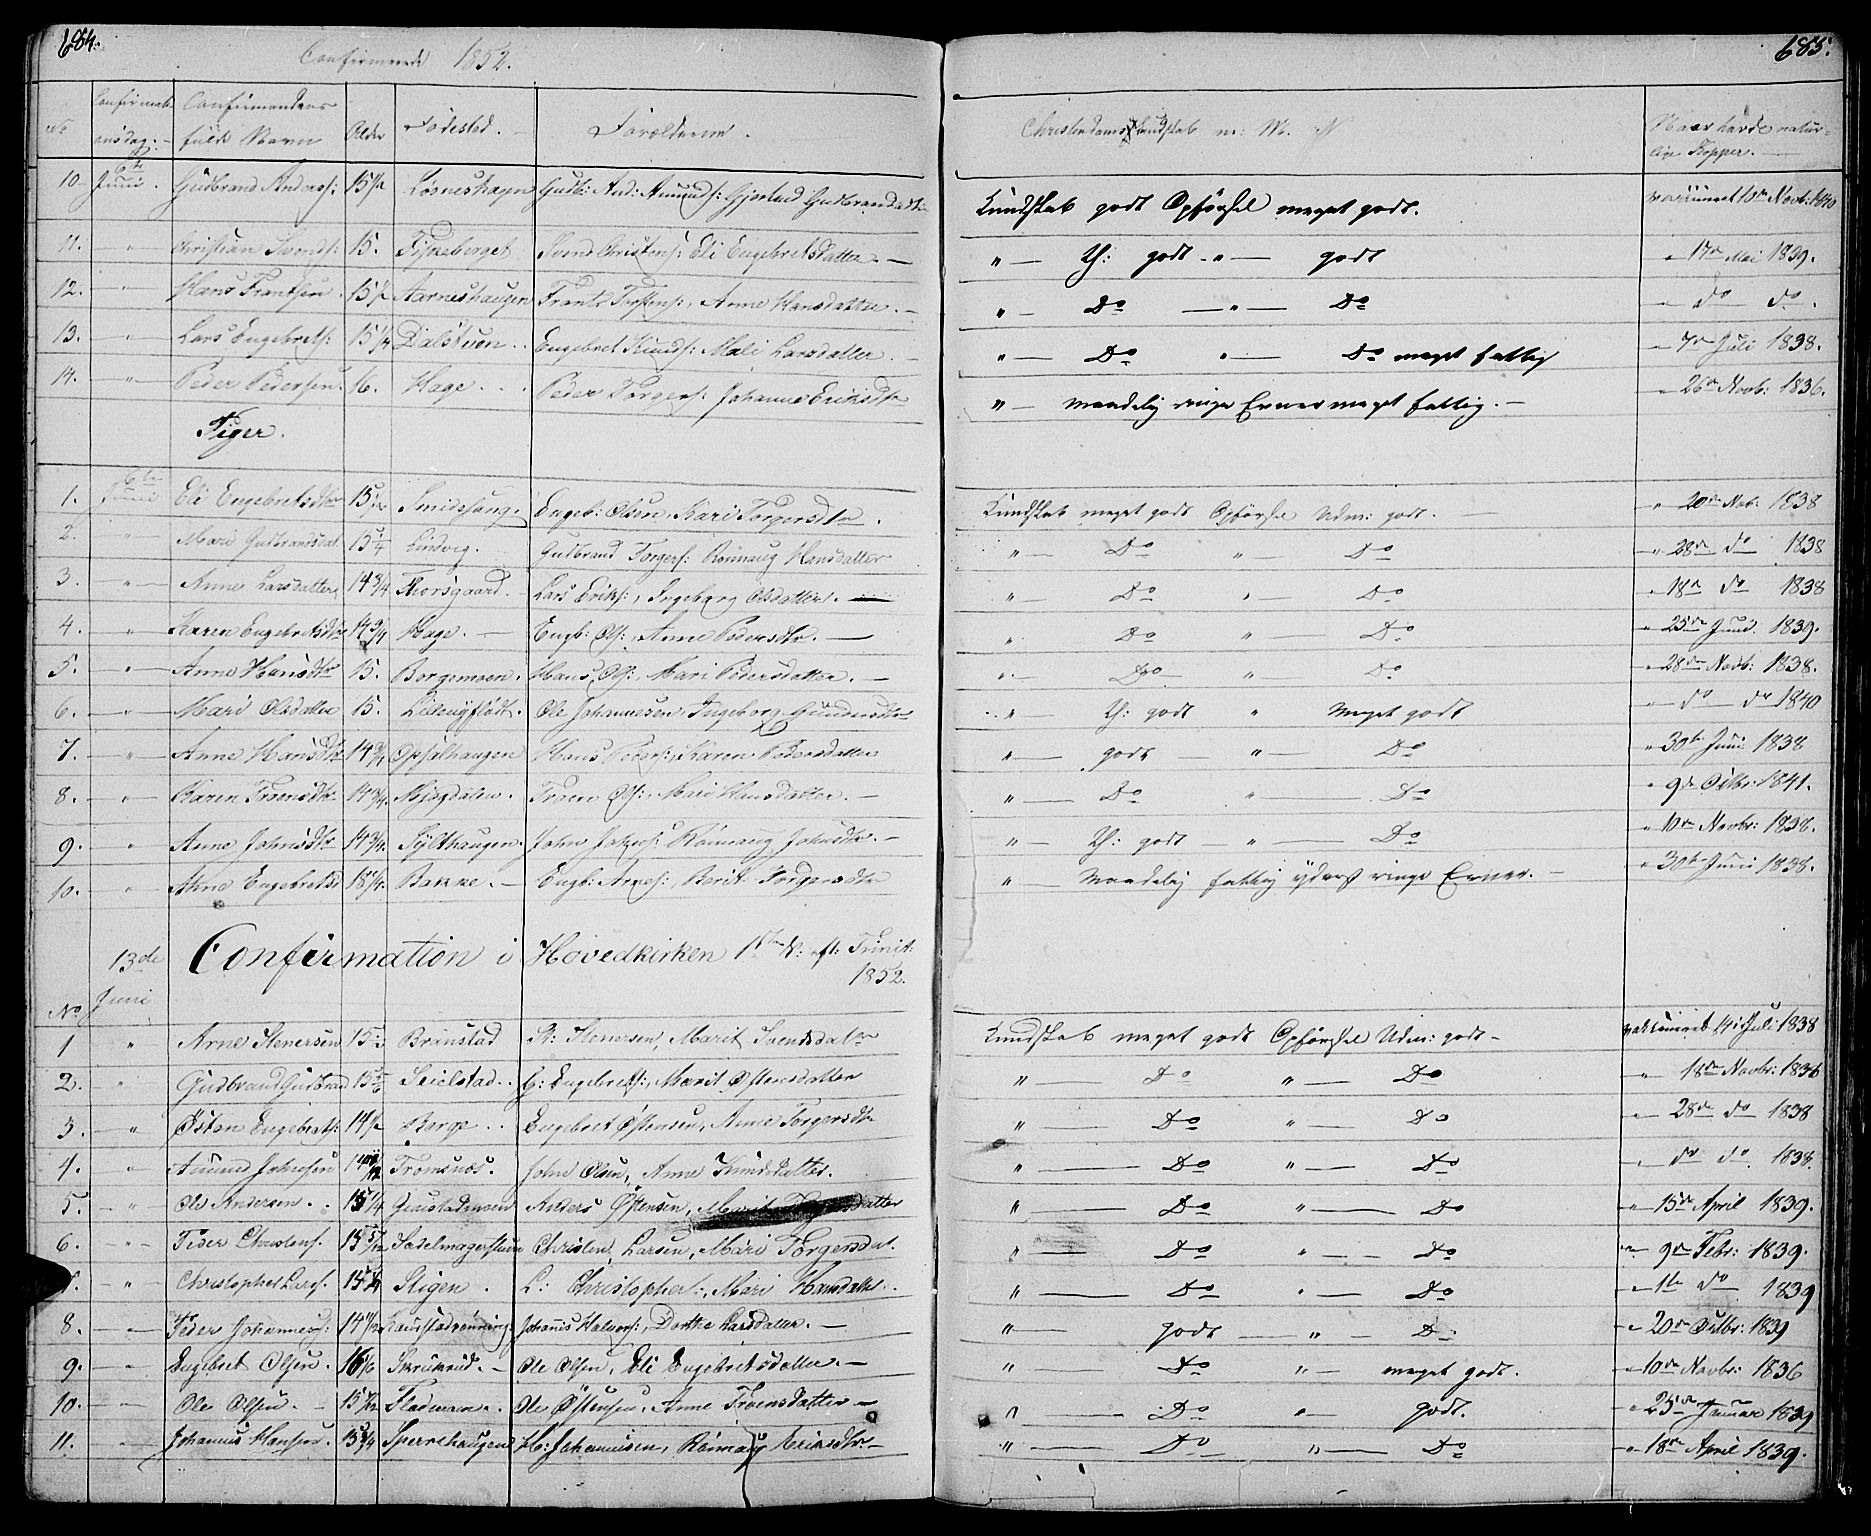 684.
Confirmerede 1852.
No Confirmati- Confirmandens Alder Födested. Forældrene.
onsdag: fulde Navn
10 6te Juni. Gudbrand Anders: 15 1/2 Løsneshagen Gudb: And: Amunds: Gjertrud Gudbrandsdtr
11. " Christian Svends: 15. Fiskeberget Svend Christens: Eli Engebretsdatter. —
12. " Hans Frantsen 15 1/2 Aarneshaugen Frants Torstens:, Anne Hansdatter. —
13. " Lars Engebrets: 15 1/4 Dalstuen. Engebret Knuds: Mali Larsdatter. —
14. " Peder Pedersen. 16. Hage. Peder Torgers: Johanne Eriksdtr
Piger.
1. 6te Juni Eli Engebretsdtr 15 1/2 Smidshaug. Engeb: Olsen, Kari Torgersdtr.
2. " Mari Gudbrandsdat. 15 1/4 Lindvig. Gudbrand Torgers: Rönnaug Hansdatter
3. " Anne Larsdatter 14 3/4 Thorsgaard. Lars Eriks:, Ingeborg Olsdatter. —
4. " Karen Engebretsdtr 14 3/4 Hage. — Engb: Ols:, Anne Pedersdtr. —
5. " Anne Hansdtr 15. Borgemoen. Hans Ols:, Mari Pedersdatter. —
6. " Mari Olsdatter 15. Ole Johannesen, Ingeborg Gundersdtr
7. " Anne Hansdtr 14 3/4 Opsalhaugen Hans Peders:, Karen Pedersdatter
8. " Karen Troensdtr 14 3/4 Troen Ols:, Mari Hansdatter. —
9. " Anne Johnsdtr 14 3/4. Sylthaugen. John Johns: Rönnaug Johnsdtr. —
10. " Anne Engebretsd 18 1/4. Bakke. — Engb: Arnes:, Berit Torgersdtr
13de Juni Confirmation i Hovedkirken 1ste S: eft: Trinit: 1852.
No
1 " Arne Stenersen 15 Brunstad St: Stenersen, Marit Svendsdatr
2. " Gudbrand Gudbrand 15 1/2 Seielstad. G: Engebrets:, Marit Østensdatter
3. " Østen Engebrets: 14 1/2 Berge. Engebret Østensen, Anne Torgersdtr
4. " Amund Johnsen 14 Tromsnæs. John Olsen, Anne Knudsdatter.
5. " Ole Andersen. 15 1/4 Gaustadmoen Anders Østensen, Marit
6. " Peder Christens. 15 5/12 Sadelmagerstuen Christen Larsen, Mari Torgersdat.
7. " Christopher Lars: 15 1/4 Stigen. L: Christophers:, Mari Hansdatter.
8. " Peder Johannes: 14 Johanns Halvors:, Dorthe Larsdatter. —
9. " Engebret Olsen. 16 Skrukrud. — Ole Olsen, Eli Engebretsdatter. —
10. " Ole Olsen. 15 Flademoen. Ole Østensen, Anne Troensdatter —
11. " Johannes Hansen. 15 3/4 Sperrehaugen H: Johannesen, Rönnaug Eriksdtr. —
685.
Christendoms Kundskab m: M. N Naar havde natur-
lige Kopper. —
Kundskab godt Opførsel meget godt. vaccineret 10de Novb: 1840
" — Th: godt - " — godt " 17de Mai 1839.
" — Do — " — Do " do do.
" — Do " — Do meget fattig " 7de Juli 1838.
" — maadelig ringe Evner meget fattig. — " 26de Novb: 1836.
Kundskab meget godt Opførsel Udm: godt. — " 20de Nob: 1838
" — Do " — Do " 28de do 1838
" — Do " — Do " 18de do 1838
" — Do " — Do " 25de Juni. 1839.
" — Do " — Do " 28de Novb: 1838.
" — Th: godt " Meget godt " do do 1840
" — godt " — Do " 30te Juni 1838
" — Do " — Do " 9de Octbr: 1841.
" — Th: godt — " — Do " 10de Novbr: 1838.
" — Maadelig fattig yderst ringe Evner. — " 30te Juni 1838.
Kundskab meget godt Opførsel Udm: godt — vaccineret 14de Juli 1838
" — Do " — Do " 18de Novbr: 1836
" — Do " — Do " 28de do 1838
" — Do " — Do " do do. 1838.
" — Do " — Do " 15de April 1839.
" — Do " — Do " 9de Febr: 1839.
" — Do " — Do " 1te do 1839
" — godt — " — Do " 20de Octbr: 1839
" — Do " — meget godt. " 10de Novbr: 1836
" — Do " — godt. " 25de Januar 1839
" — Do " — Do " 18de April 1839.